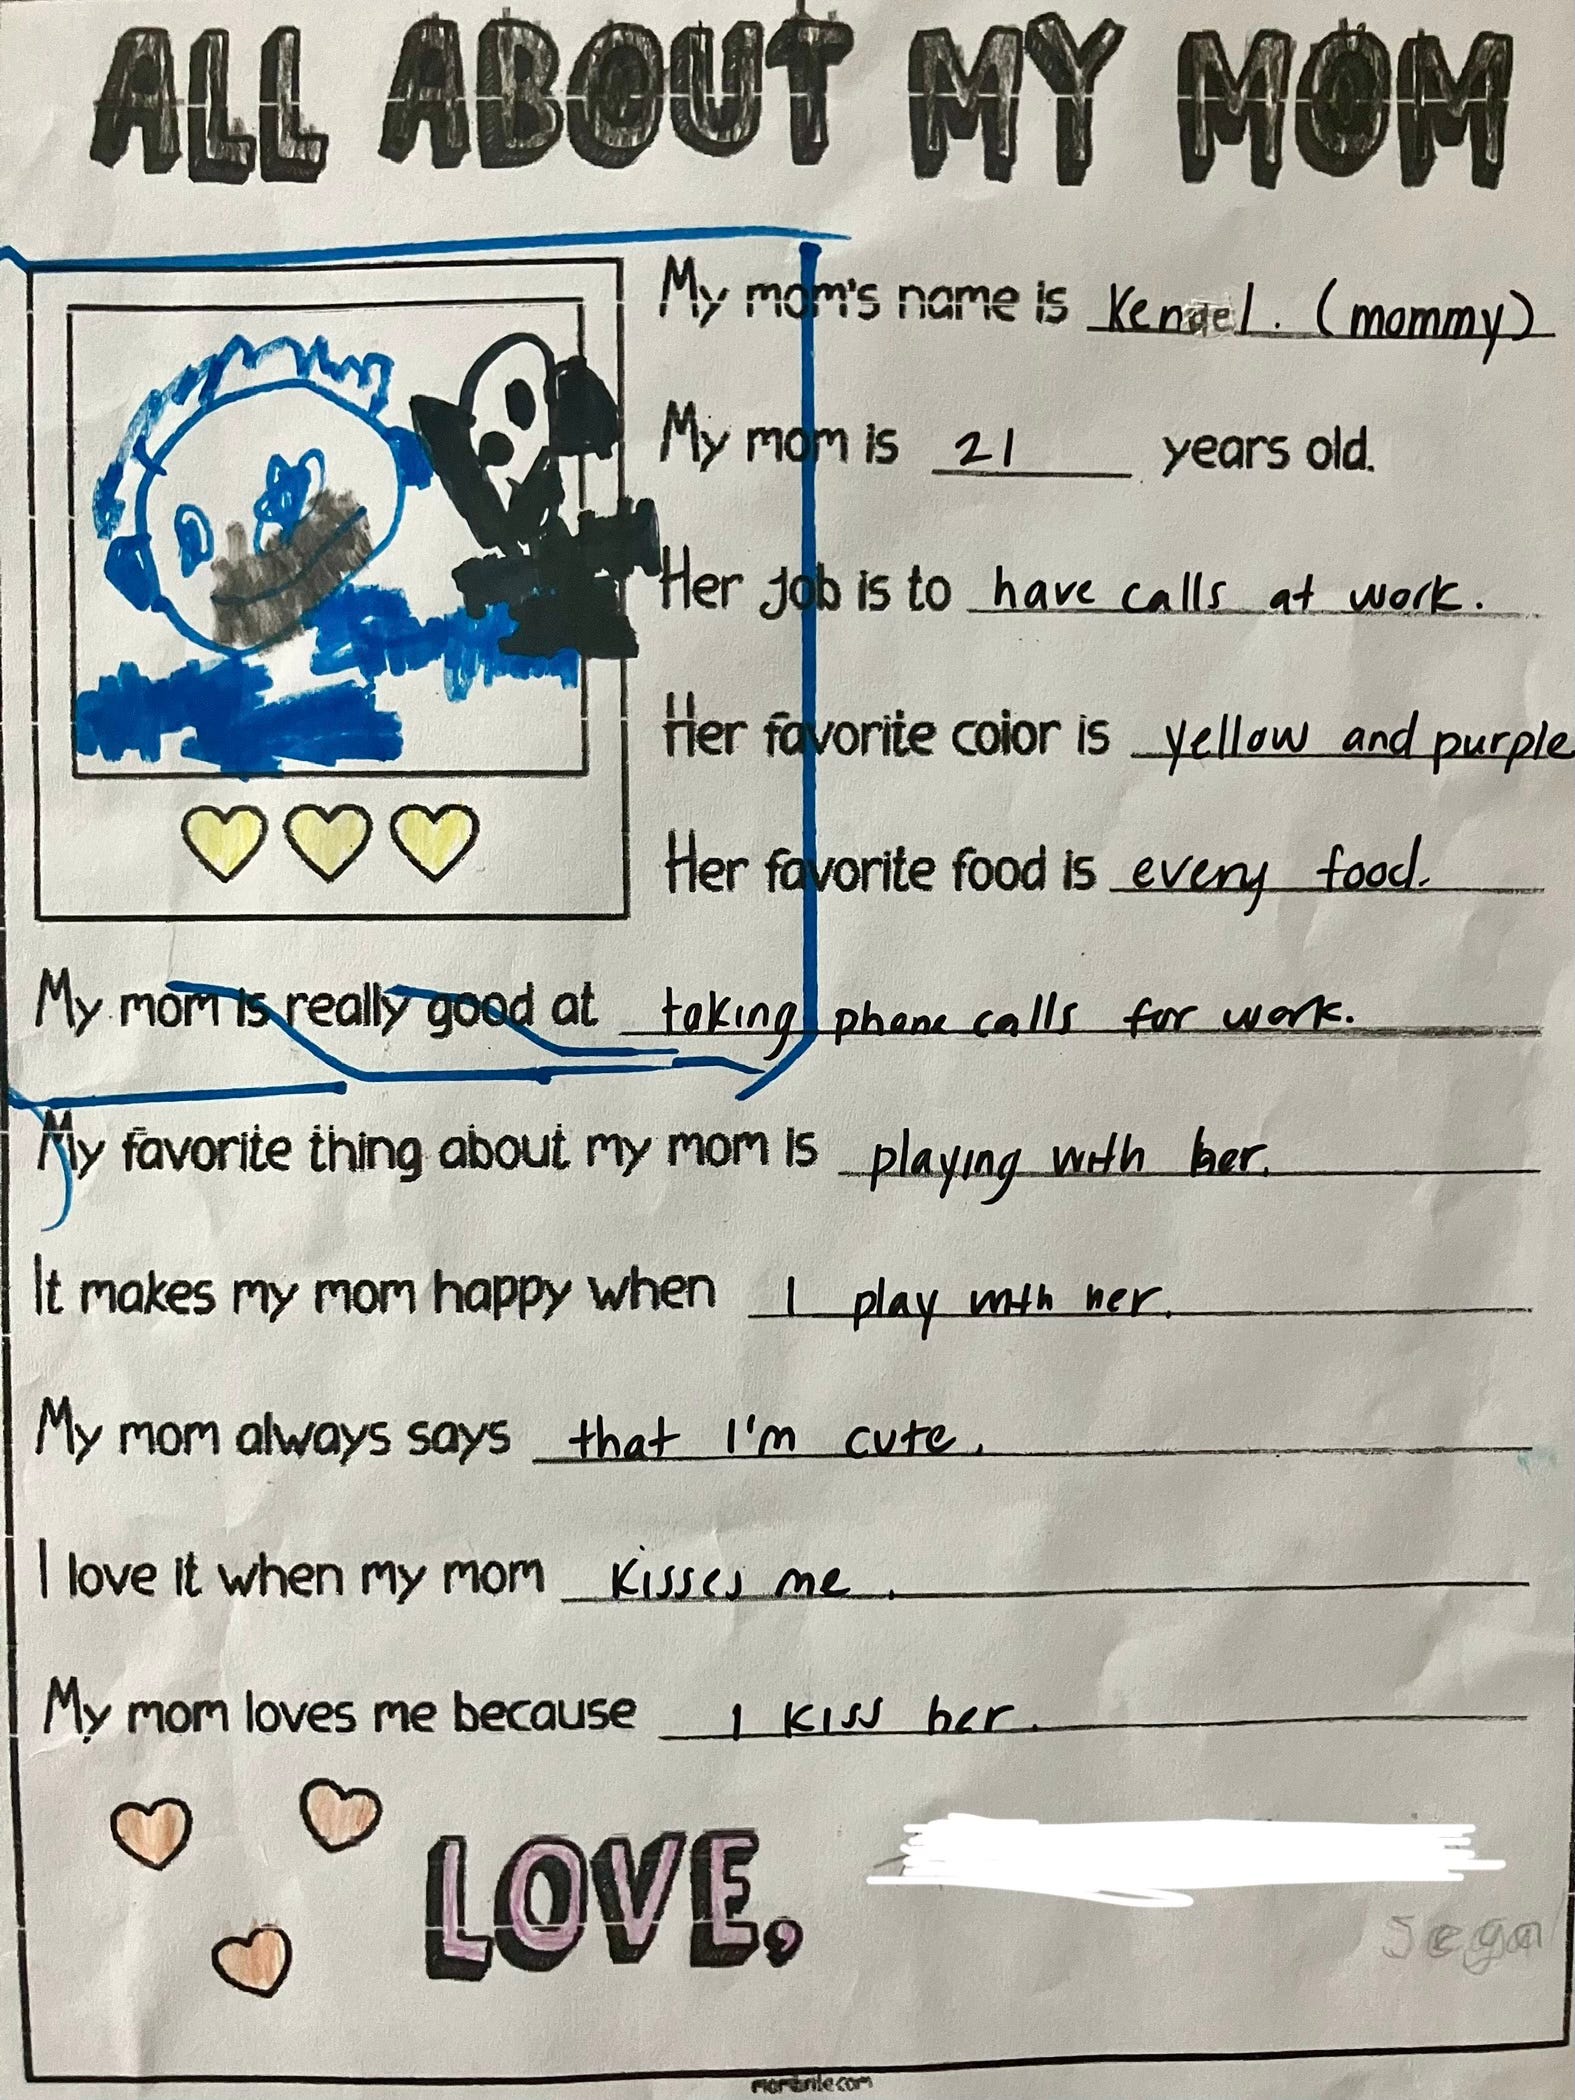 ALL ABOUT MY MOM
My mom's name is Kendel. (mommy)
My mom is 21 years old.
Her job is to have calls at work.
Her favorite color is yellow and purple
Her favorite food is every food.
My mom is really good at taking phone calls for work.
My favorite thing about my mom is playing with her.
It makes my mom happy when I play with her.
My mom always says that I'm cute.
I love it when my mom kisses me.
My mom loves me because I kiss her.
LOVE,